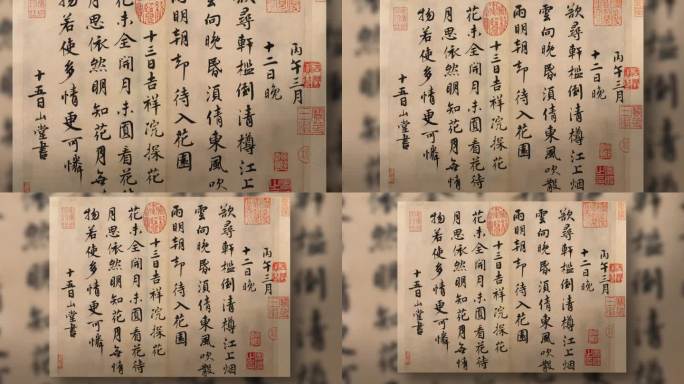 丙午三月
十二日晚
欲尋軒檻倒清樽江上烟
雲向晚昏須倩東風吹散
雨明朝却待入花園
十三日吉祥院探花
花未全開月未圓看花待
月思依然明知花月無情
物若使多情更可憐
十五日山堂書
丙午三月
十二日晚
欲尋軒檻倒清樽江上烟
雲向晚昏須倩東風吹散
雨明朝却待入花園
十三日吉祥院探花
花未全開月未圓看花待
月思依然明知花月無情
物若使多情更可憐
十五日山堂書
丙午三月
十二日晚
欲尋軒檻倒清樽江上烟
雲向晚昏須倩東風吹散
雨明朝却待入花園
十三日吉祥院探花
花未全開月未圓看花待
月思依然明知花月無情
物若使多情更可憐
十五日山堂書
丙午三月
十二日晚
欲尋軒檻倒清樽江上烟
雲向晚昏須倩東風吹散
雨明朝却待入花園
十三日吉祥院探花
花未全開月未圓看花待
月思依然明知花月無情
物若使多情更可憐
十五日山堂書